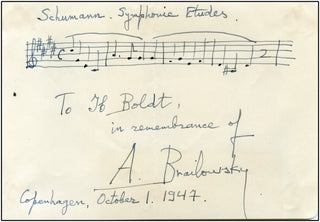 Schumann. Symphonic Etudes.
To If Boldt,
in remembrance of
A. Brailowsky
Copenhagen, October 1. 1947.